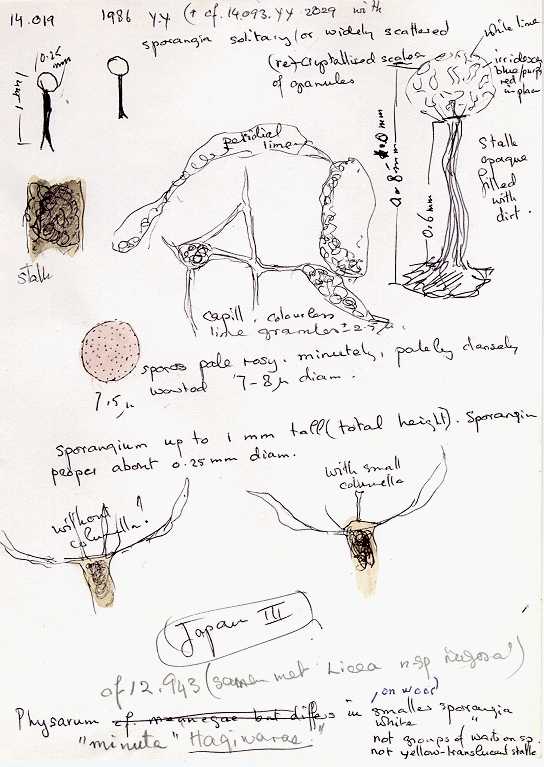 14.019 1986 YY (↑ cf. 14.093. YY 2029 with
sporangia solitary/or widely scattered
(re)-crystallized scales
of granules
white lime
irridescent
blue/purple
red
in places
0.25
mm
1 mm
peridial
lime
0.8 mm
0.6 mm
Stalk
opaque
filled
with
dirt.
Stalk
capill. colourless
lime granules ± 2.5 µ.
spores pale rosy. minutely, palely densely
warted 7-8 µ diam.
7.5 µ
Sporangium up to 1 mm tall (total height). Sporangia
proper about 0.25 mm diam.
without
columella!
with small
columella
Japan III
cf 12.943 (samen met Licea n sp rugosa)
Physarum cf but differs in smaller sporangia
, on wood
white "
"minuta" Hagiwaras."
not groups of warts on sp.
not yellow-translucent stalk